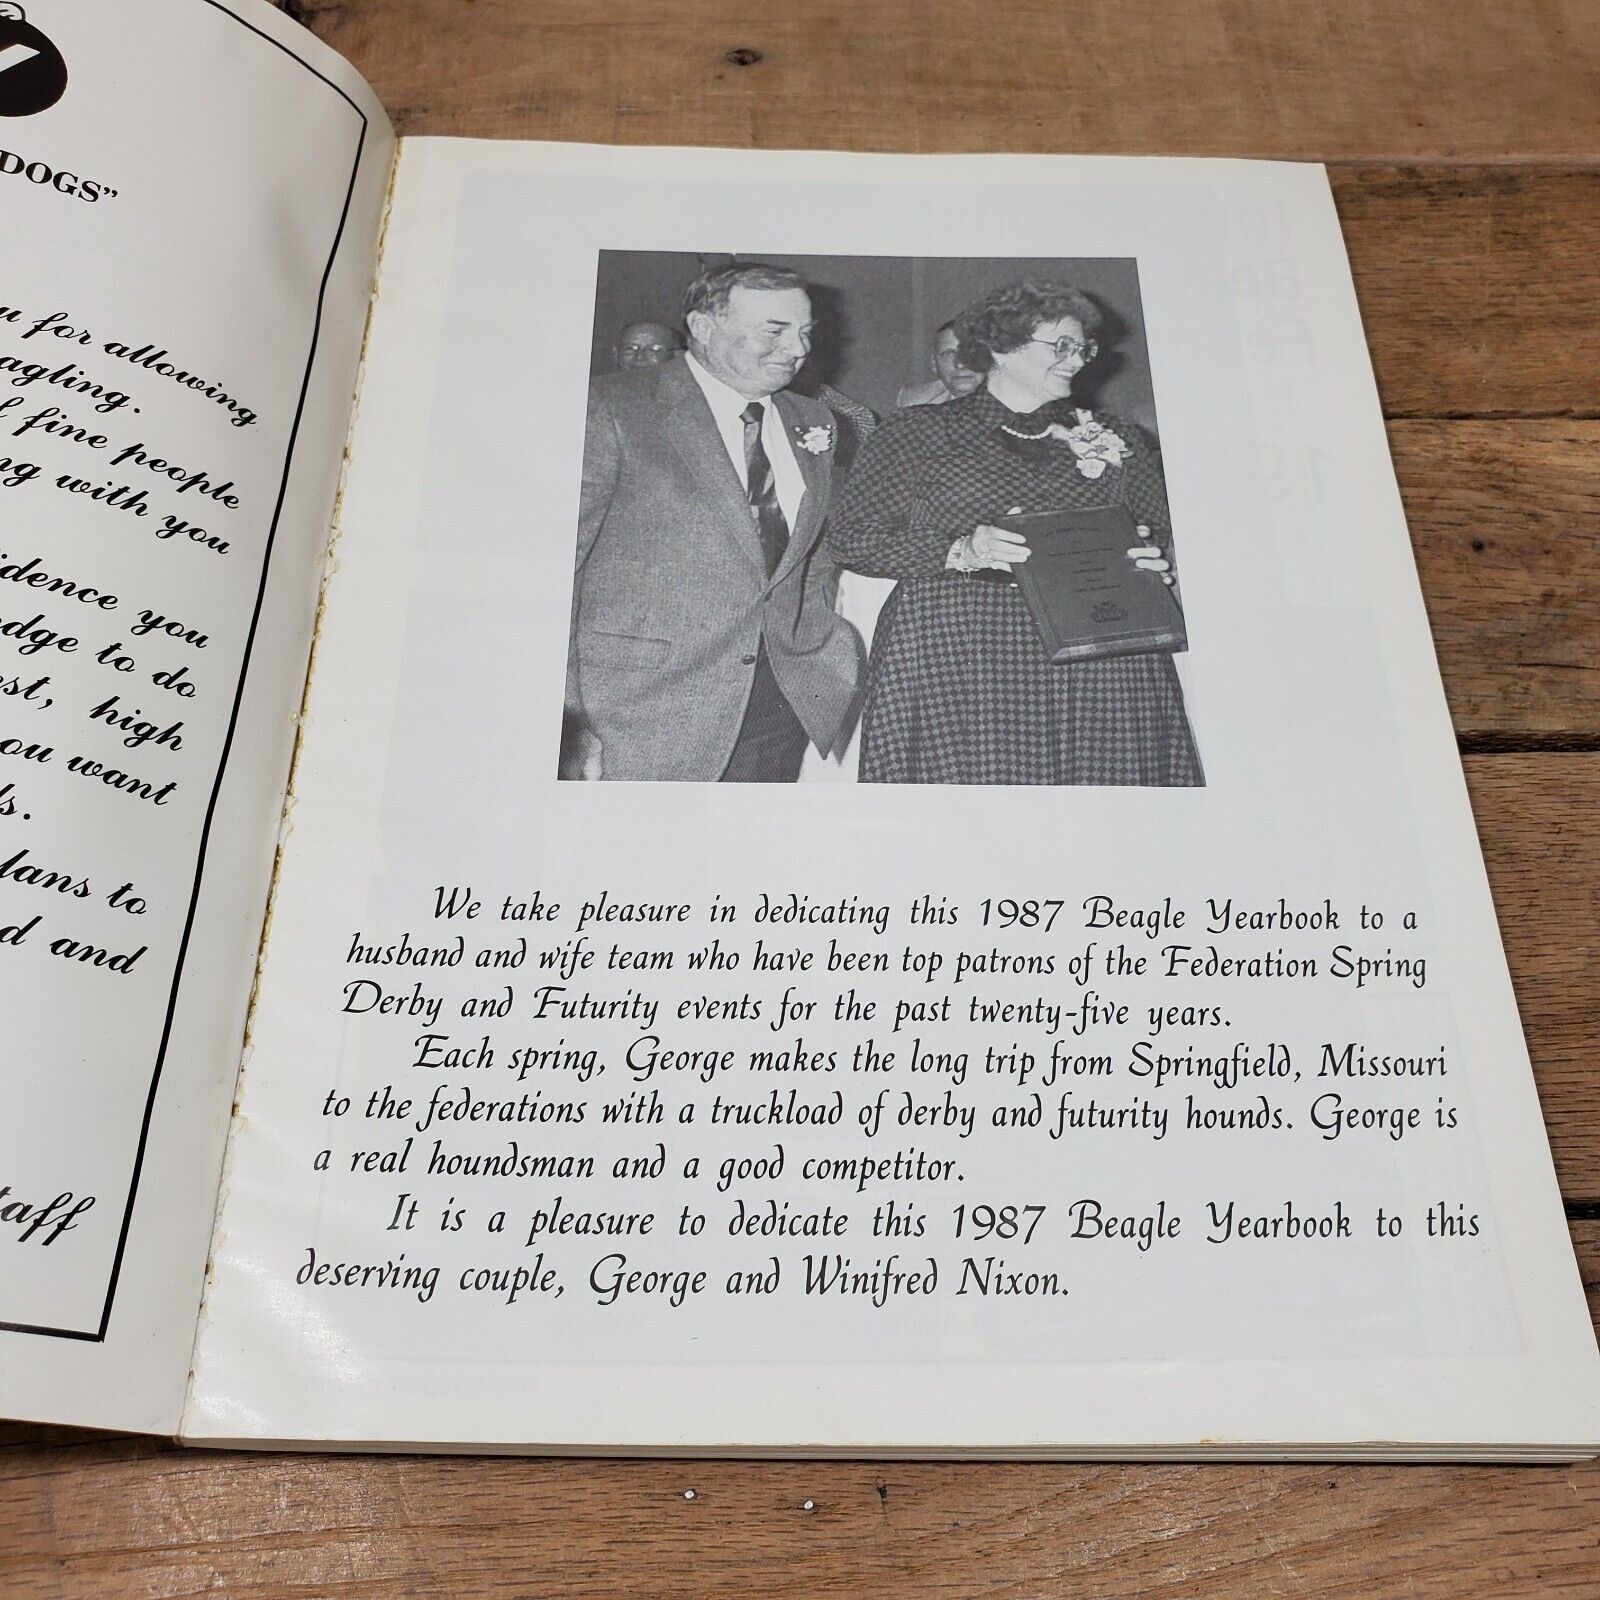 DOGS”
for allowing
fine people
with you
you
to do
high
want
to
and
We take pleasure in dedicating this 1987 Beagle Yearbook to a
husband and wife team who have been top patrons of the Federation Spring
Derby and Futurity events for the past twenty-five years.
Each spring, George makes the long trip from Springfield, Missouri
to the federations with a truckload of derby and futurity hounds. George is
a real houndsman and a good competitor.
It is a pleasure to dedicate this 1987 Beagle Yearbook to this
deserving couple, George and Winifred Nixon.